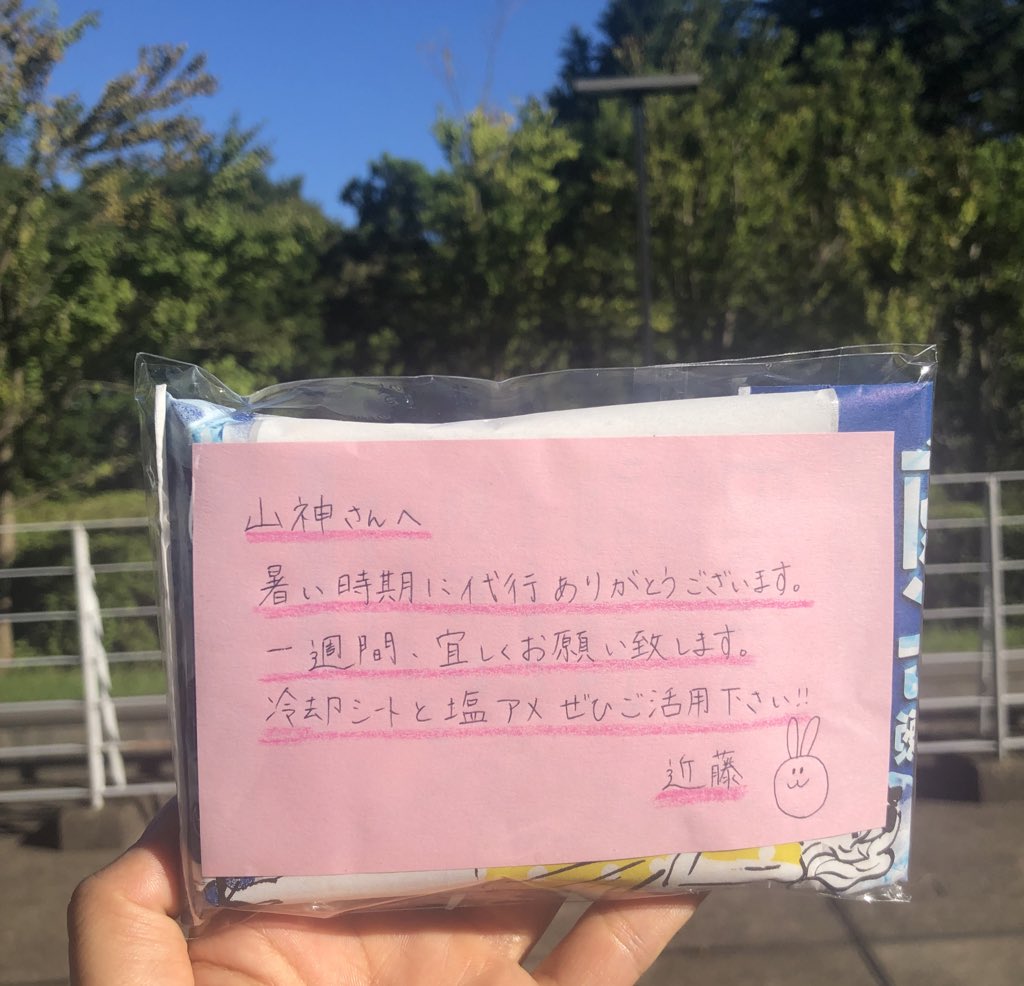 山神さんへ
暑い時期に代行ありがとうございます。
一週間、宜しくお願い致します。
冷却シートと塩アメぜひご活用下さい!!
近藤